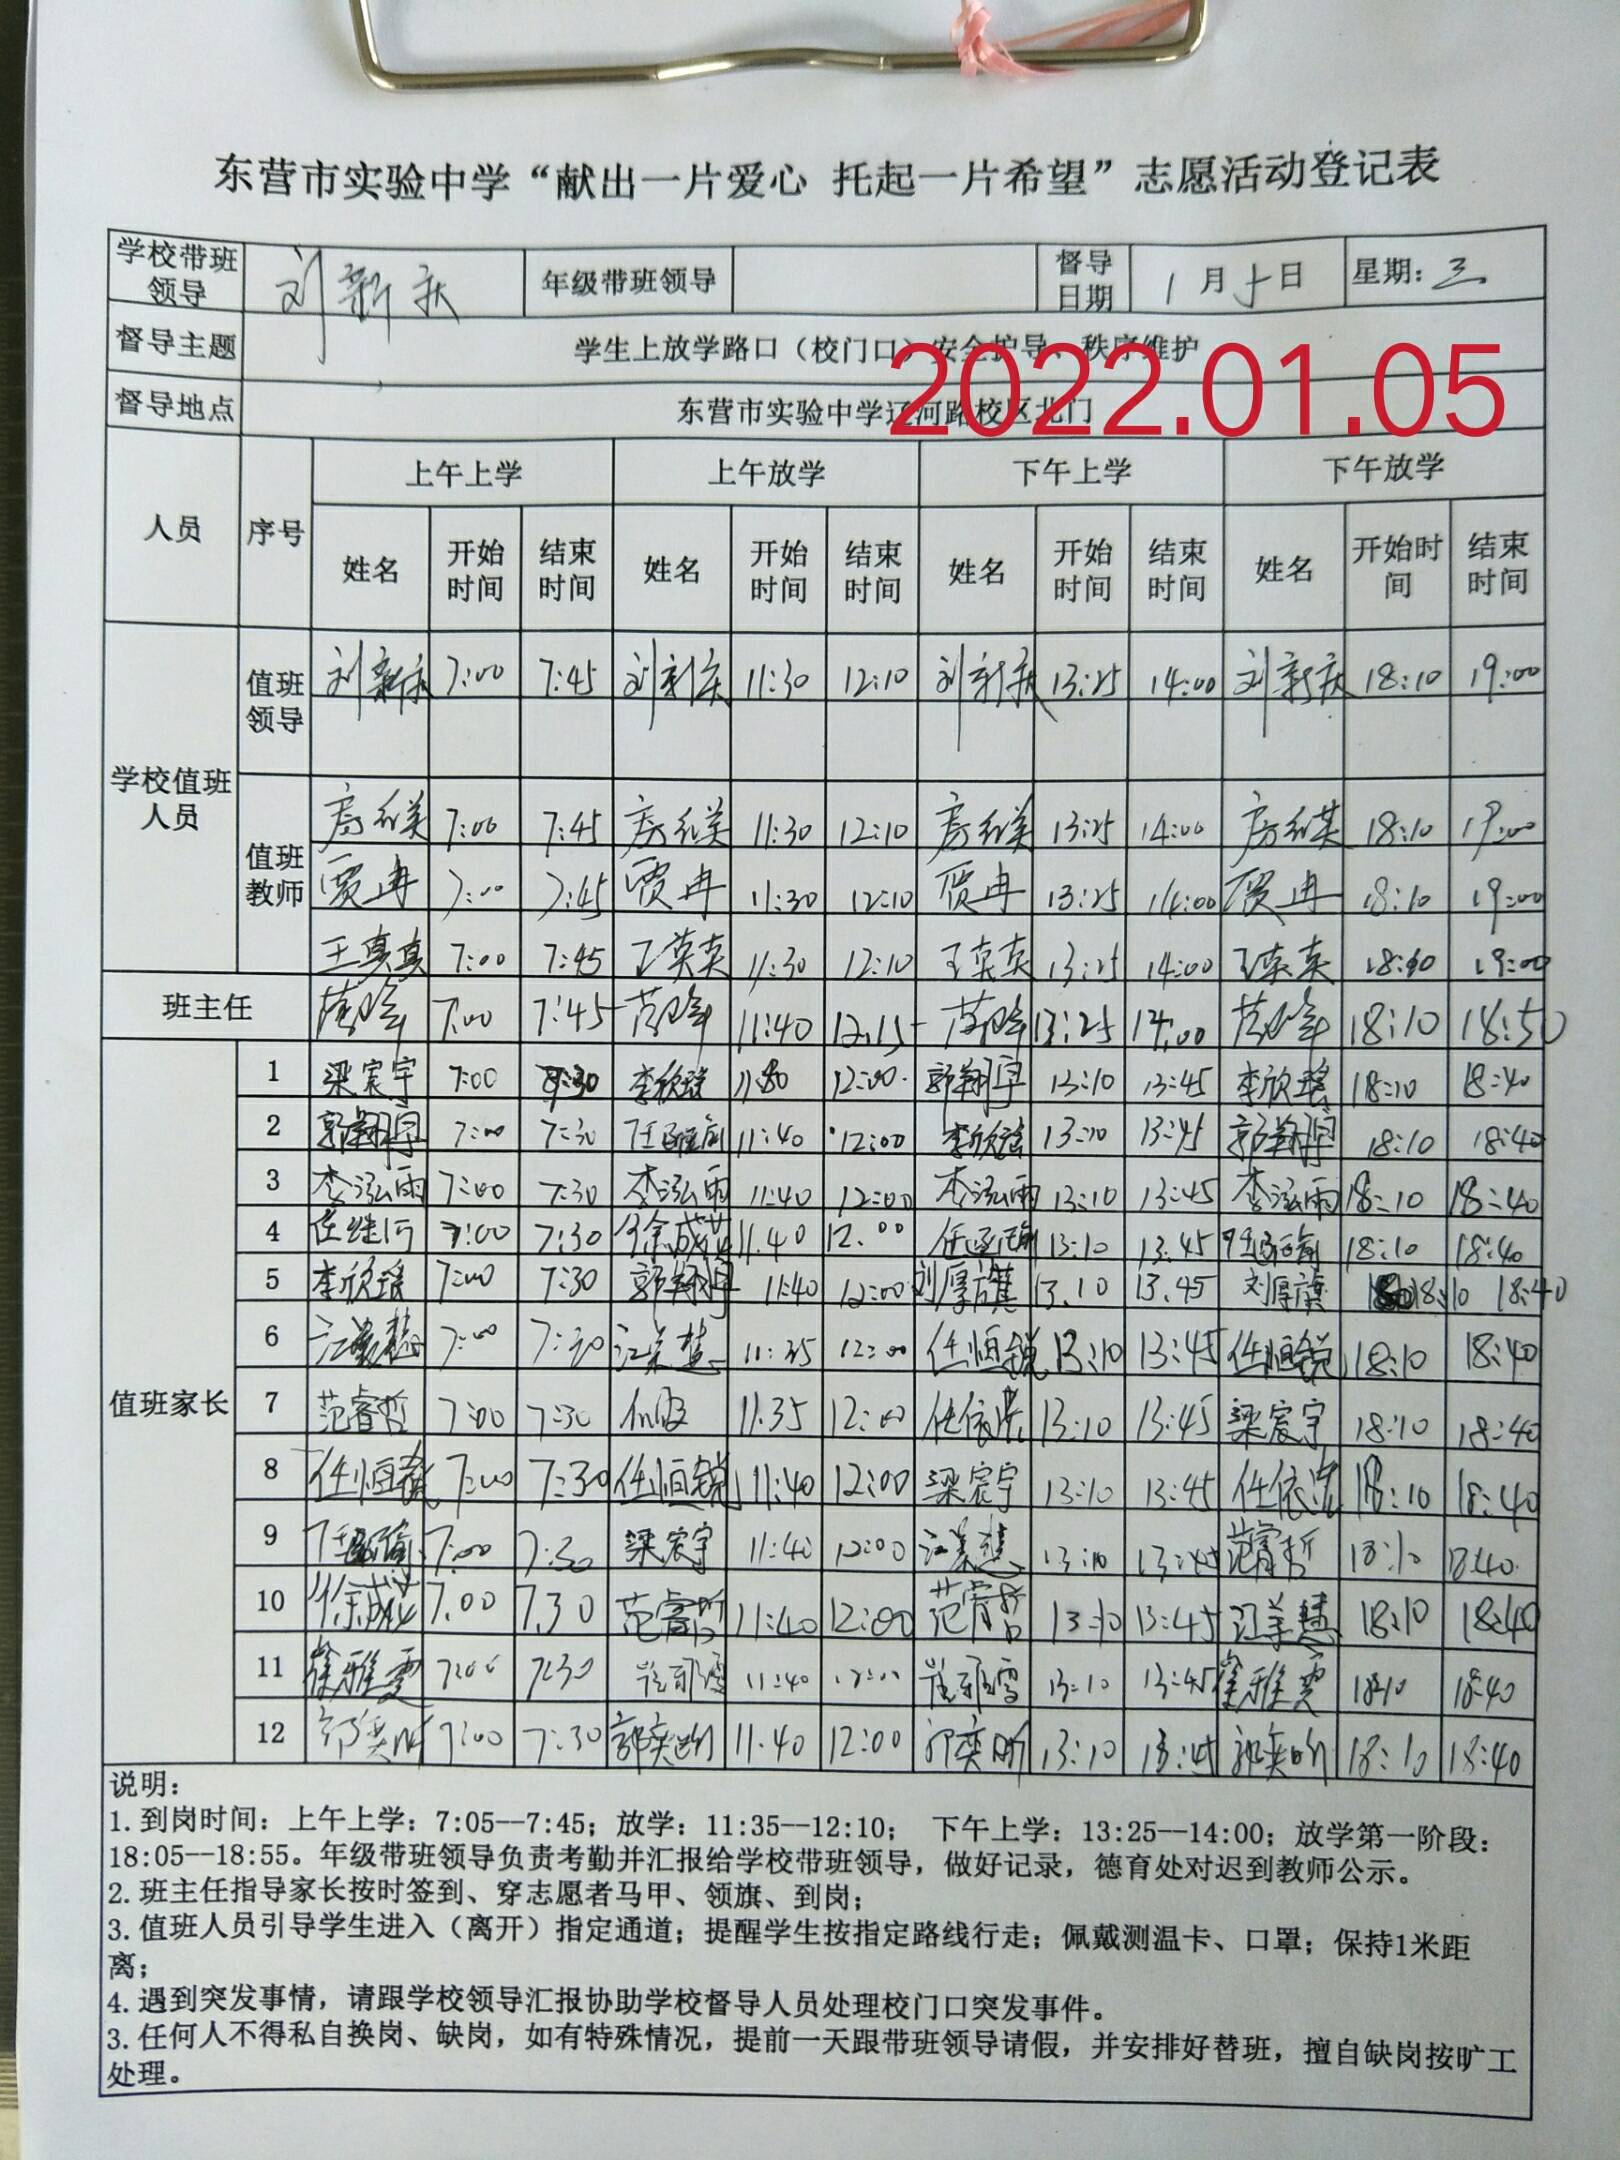 东营市实验中学“献出一片爱心 托起一片希望”志愿活动登记表
学校带班领导 刘新庆 年级带班领导 督导日期 1月5日 星期：三
督导主题 学生上放学路口（校门口）安全护导、秩序维护
2022.01.05
督导地点 东营市实验中学辽河路校区北门
人员 序号 上午上学 上午放学 下午上学 下午放学
姓名 开始时间 结束时间 姓名 开始时间 结束时间 姓名 开始时间 结束时间 姓名 开始时间 结束时间
学校值班人员
值班领导 刘新庆 7:00 7:45 刘新庆 11:30 12:10 刘新庆 13:25 14:00 刘新庆 18:10 19:00
值班教师 7:00 7:45 11:30 12:10 13:25 14:00 18:10 19:00
贾冉 7:00 7:45 贾冉 11:30 12:10 贾冉 13:25 14:00 贾冉 18:10 19:00
7:00 7:45 11:30 12:10 13:25 14:00 18:10 19:00
班主任 7:00 7:45 11:40 12:15 13:25 14:00 18:10 18:50
值班家长
1 梁宸宇 7:00 7:30 李欣瑶 12:00 13:10 13:45 李欣瑶 18:10 18:40
2 7:00 7:30 11:40 12:00 李欣瑶 13:10 13:45 18:10 18:40
3 李泓雨 7:00 7:30 李泓雨 11:40 12:00 李泓雨 13:10 13:45 李泓雨 18:10 18:40
4 7:00 7:30 11:40 12:00 13:10 13:45 18:10 18:40
5 李欣瑶 7:00 7:30 11:40 12:00 刘厚旗 13:10 13:45 刘厚旗 18:10 18:40
6 江美慧 7:00 7:30 江美慧 11:35 12:00 任恒锐 13:10 13:45 任恒锐 18:10 18:40
7 范睿哲 7:00 7:30 11:35 12:00 13:10 13:45 梁宸宇 18:10 18:40
8 任恒锐 7:00 7:30 任恒锐 11:40 12:00 梁宸宇 13:10 13:45 18:10 18:40
9 7:00 7:30 梁宸宇 11:40 12:00 江美慧 13:10 13:45 范睿哲 18:10 18:40
10 7:00 7:30 范睿哲 11:40 12:00 范睿哲 13:10 13:45 江美慧 18:10 18:40
11 7:00 7:30 11:40 12:00 13:10 13:45 18:10 18:40
12 郭奕昕 7:00 7:30 郭奕昕 11:40 12:00 郭奕昕 13:10 13:45 郭奕昕 18:10 18:40
说明：
1.到岗时间：上午上学：7:05--7:45；放学：11:35--12:10； 下午上学：13:25--14:00；放学第一阶段：
18:05--18:55。年级带班领导负责考勤并汇报给学校带班领导，做好记录，德育处对迟到教师公示。
2.班主任指导家长按时签到、穿志愿者马甲、领旗、到岗；
3.值班人员引导学生进入（离开）指定通道；提醒学生按指定路线行走；佩戴测温卡、口罩；保持1米距
离；
4.遇到突发事情，请跟学校领导汇报协助学校督导人员处理校门口突发事件。
3.任何人不得私自换岗、缺岗，如有特殊情况，提前一天跟带班领导请假，并安排好替班，擅自缺岗按旷工
处理。